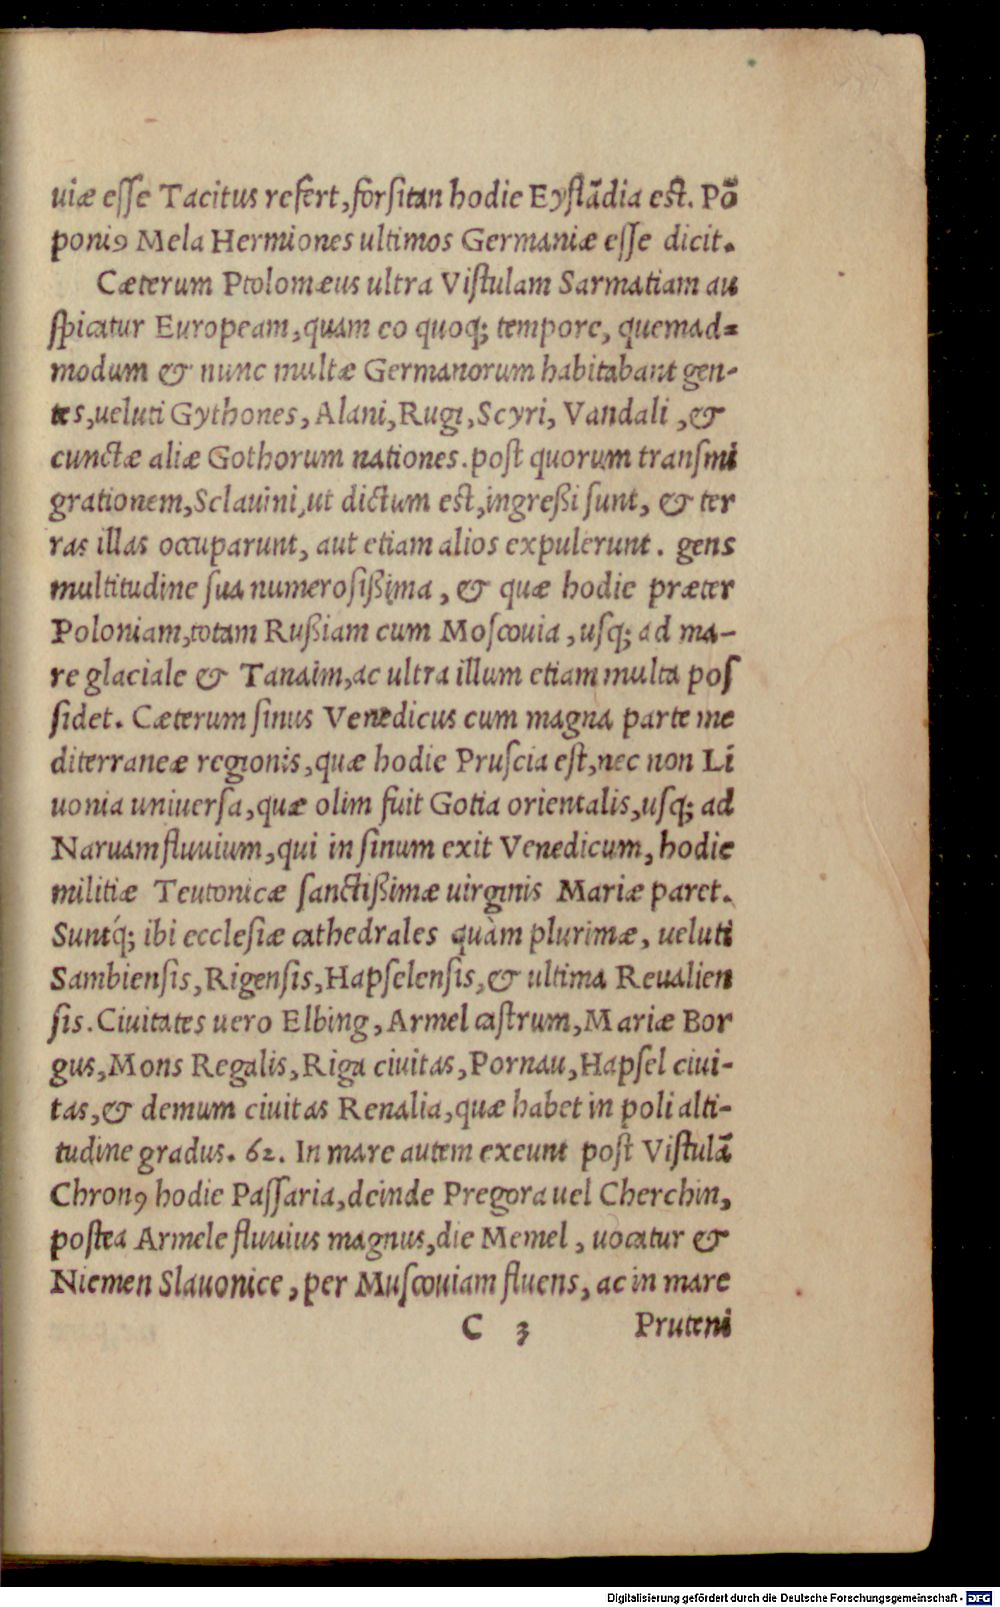 uiæ eſſe Tacitus refert, forſitan hodie Eyſtãdia eſt. Põ
poniꝰ Mela Hermiones ultimos Germaniæ eſſe dicit.
Cæterum Ptolomæus ultra Viſtulam Sarmatiam au
ſpicatur Europeam, quam eo quoq; tempore, quemad=
modum & nunc multæ Germanorum habitabant gen-
tes, ueluti Gythones, Alani, Rugi, Scyri, Vandali, &
cunctæ aliæ Gothorum nationes. poſt quorum tranſmi
grationem, Sclauini, ut dictum eſt, ingreßi ſunt, & ter
ras illas occuparunt, aut etiam alios expulerunt. gens
multitudine ſua numeroſißima, & quæ hodie præter
Poloniam, totam Rußiam cum Moſcouia, uſq; ad ma-
re glaciale & Tanaim, ac ultra illum etiam multa poſ
ſidet. Cæterum ſinus Venedicus cum magna parte me
diterraneæ regionis, quæ hodie Pruſcia eſt, nec non Li
uonia uniuerſa, quæ olim fuit Gotia orientalis, uſq; ad
Naruam fluuium, qui in ſinum exit Venedicum, hodie
militiæ Teutonicæ ſanctißimæ uirginis Mariæ paret.
Suntq́; ibi eccleſiæ cathedrales quàm plurimæ, ueluti
Sambienſis, Rigenſis, Hapſelenſis, & ultima Reualien
ſis. Ciuitates uero Elbing, Armel caſtrum, Mariæ Bor
gus, Mons Regalis, Riga ciuitas, Pornau, Hapſel ciui-
tas, & demum ciuitas Renalia, quæ habet in poli alti-
tudine gradus. 62. In mare autem exeunt poſt Viſtulã
Chronꝰ hodie Paſſaria, deinde Pregora uel Cherchin,
poſtea Armele fluuius magnus, die Memel, uocatur &
Niemen Slauonice, per Muſcouiam fluens, ac in mare
C 3 Pruteni
Digitalisierung gefördert durch die Deutsche Forschungsgemeinschaft - DFG